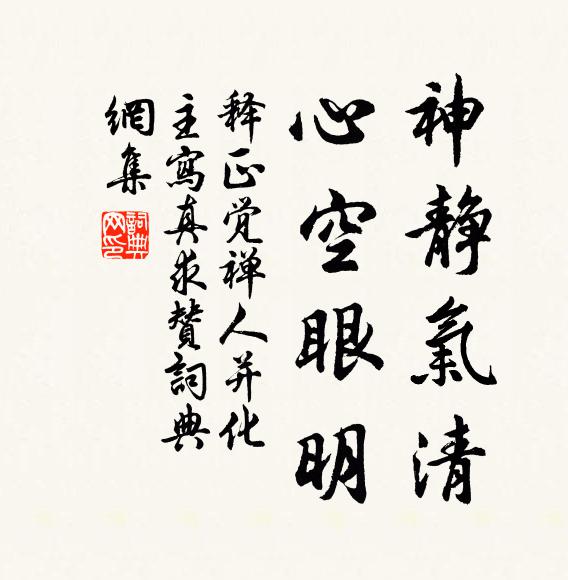 神静氣清
心空眼明
释正觉禅人并化
主寫真求赞詞典
網集
詞典网印